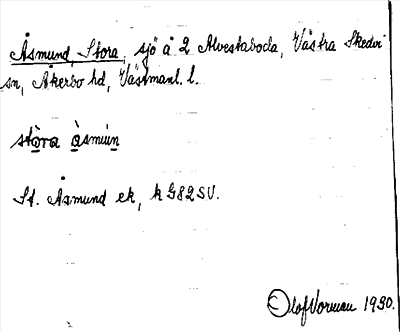 Åsmund, Stora, sjö å 2 Alvestaboda, Västra Skedvi
sn, Åkerbo hd, Västmanl. l.
stòra àsmuṇn
St. Åsmund ek, k G82SV.
Olof Norman 1930.